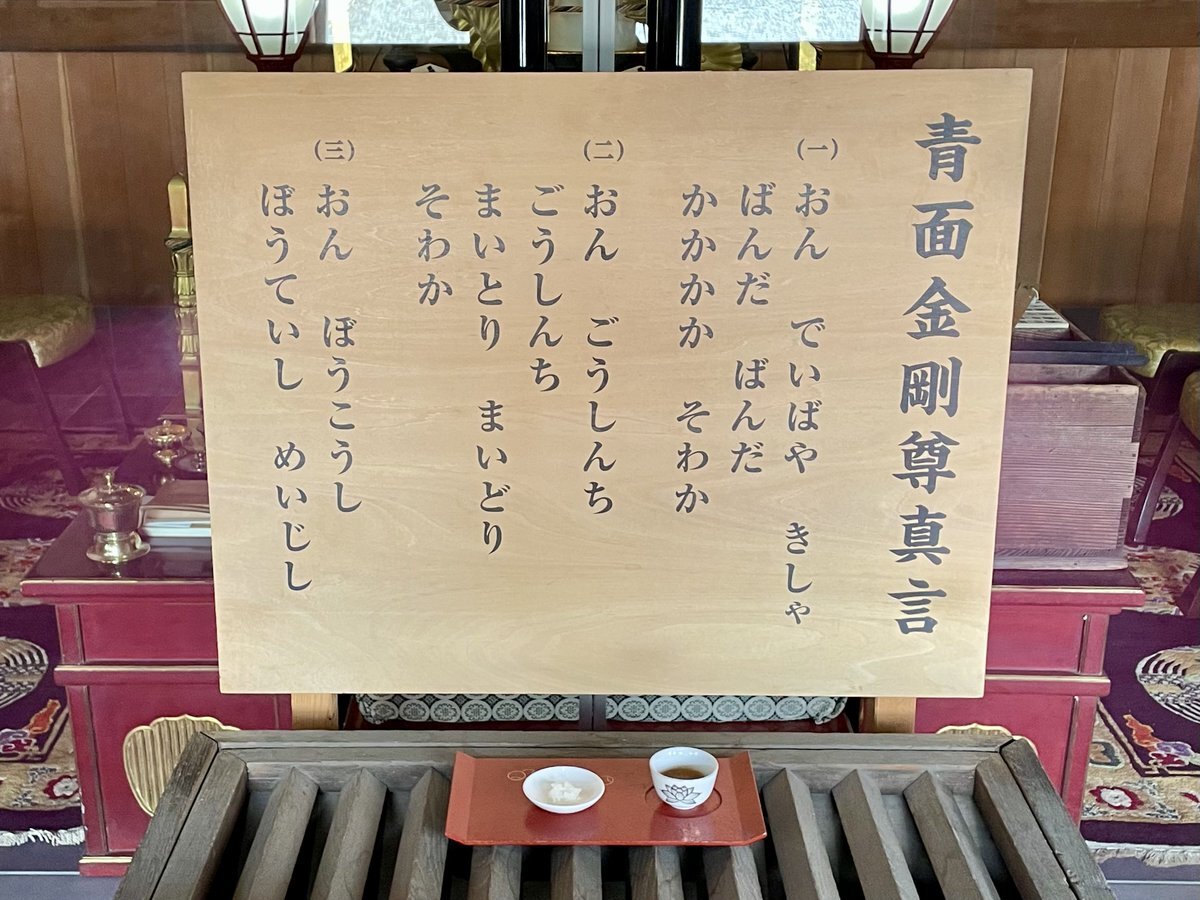 青面金剛尊真言
(一)
おん でいばや きしゃ
ばんだ ばんだ
かかかか そわか
(二)
おん ごうしんち
ごうしんち
まいとり まいどり
そわか
(三)
おん ぼうこうし
ぼうていし めいじし